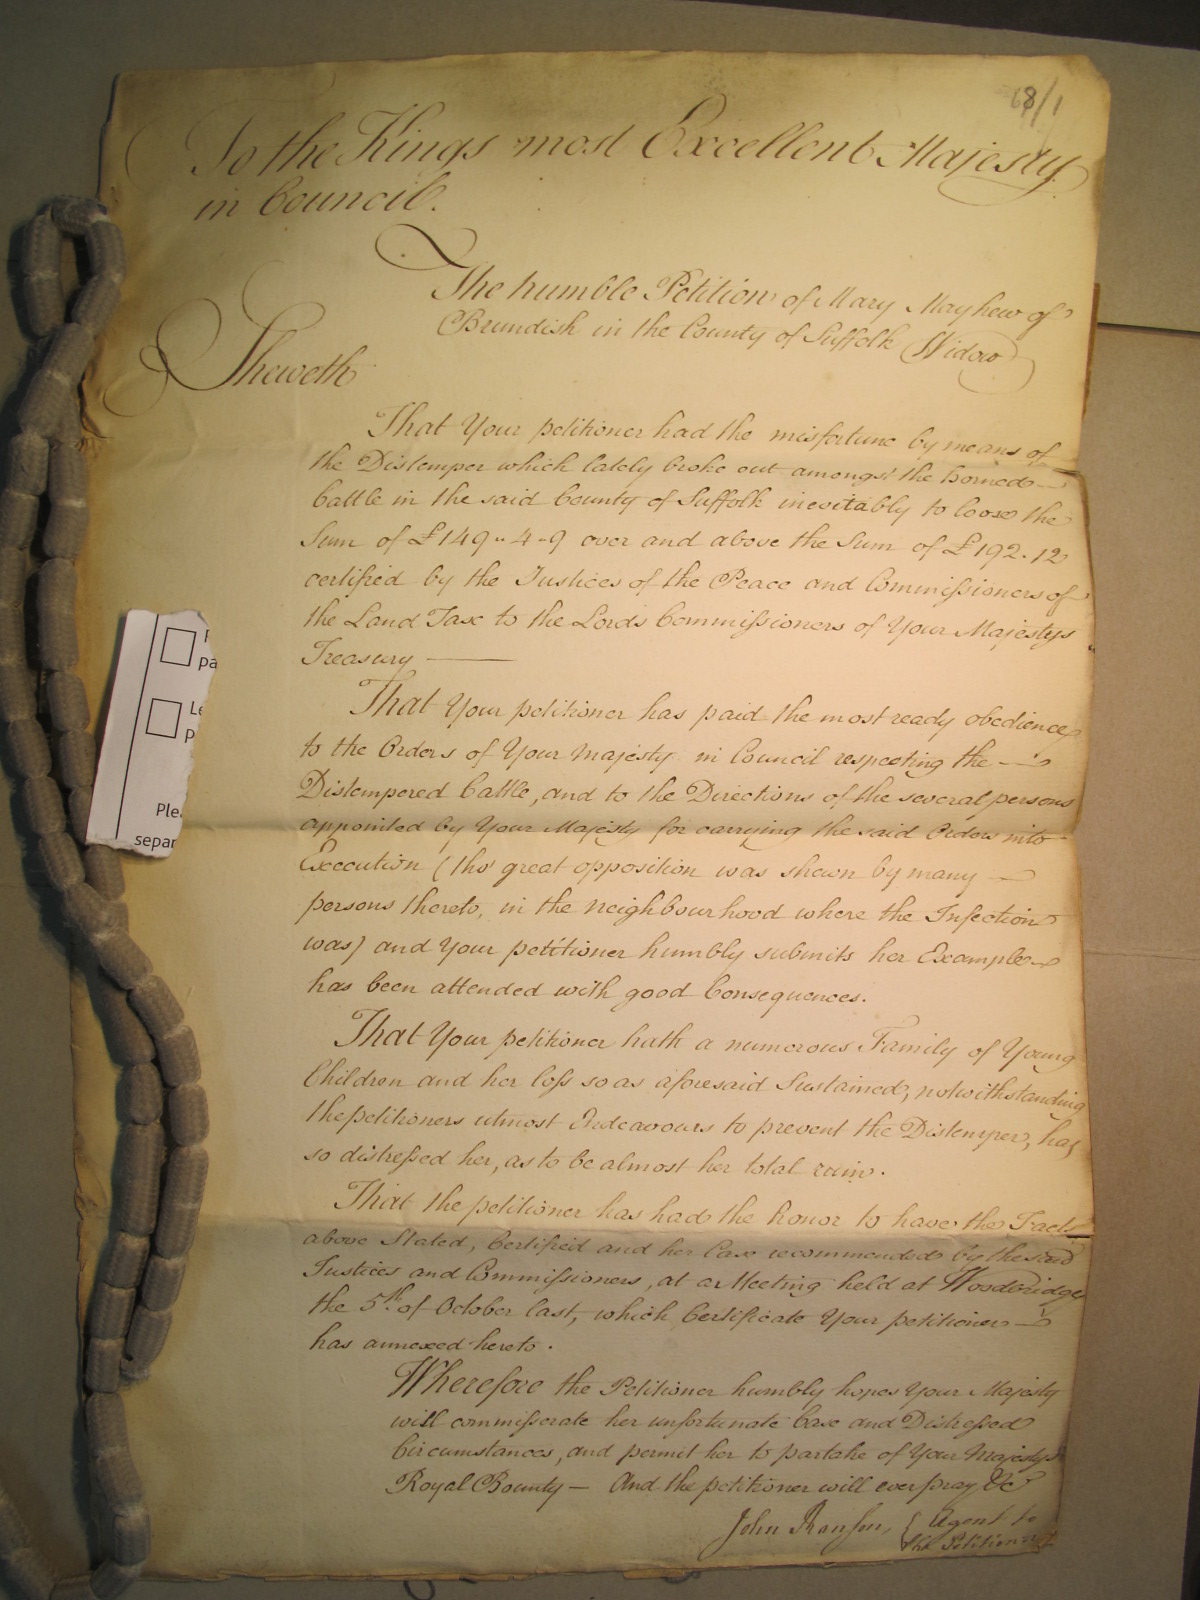 68/1
To the Kings most Excellent Majesty
in Council.
The humble Petition of Mary Mayhew of
Brundish in the County of Suffolk Widow
Sheweth
That Your petitioner had the misfortune by means of
the Distemper which lately broke out amongst the horned
Cattle in the said County of Suffolk inevitably to loose the
Sum of £149-4-9 over and above the Sum of £192.12
certified by the Justices of the Peace and Commissioners of
the Land Tax to the Lords Commissioners of Your Majestys
Treasury
That Your petitioner has paid the most ready obedience
to the Orders of Your Majesty in Council respecting the
Distempered Cattle, and to the Directions of the several persons
appointed by Your Majesty for carrying the said Orders into
Execution (tho' great opposition was shewn by many
persons thereto, in the neighbourhood where the Infection
was) and Your petitioner humbly submits her Example
has been attended with good Consequences.
That Your petitioner hath a numerous Family of Young
Children and her loss so as aforesaid Sustained, notwithstanding
the petitioners utmost Endeavours to prevent the Distemper, has
so distressed her, as to be almost her total ruin.
That the petitioner has had the honor to have the Facts
above Stated, Certified and her Case recommended by the said
Justices and Commissioners, at a Meeting held at Woodbridge
the 5th of October last, which Certificate Your petitioner
has annexed hereto.
Wherefore the Petitioner humbly hopes Your Majesty
will commisserate her unfortunate Case and Distressed
Circumstances, and permit her to partake of Your Majestys
Royal Bounty — And the petitioner will ever pray &c
John Ranson, { Agent to
the Petitioner
pa
Le
p
Ple
separ